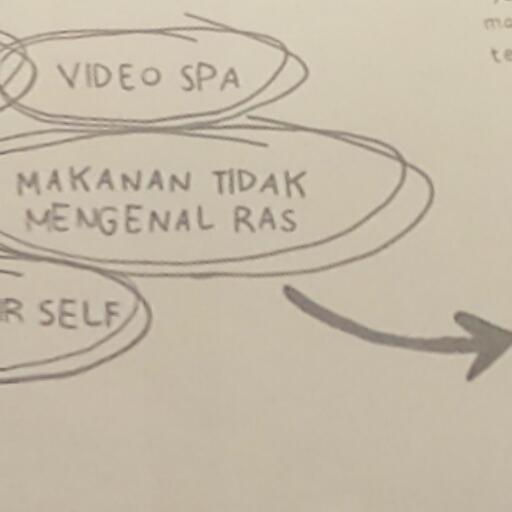 VIDEO SPA
MAKANAN TIDAK
MENGENAL RAS
SELF